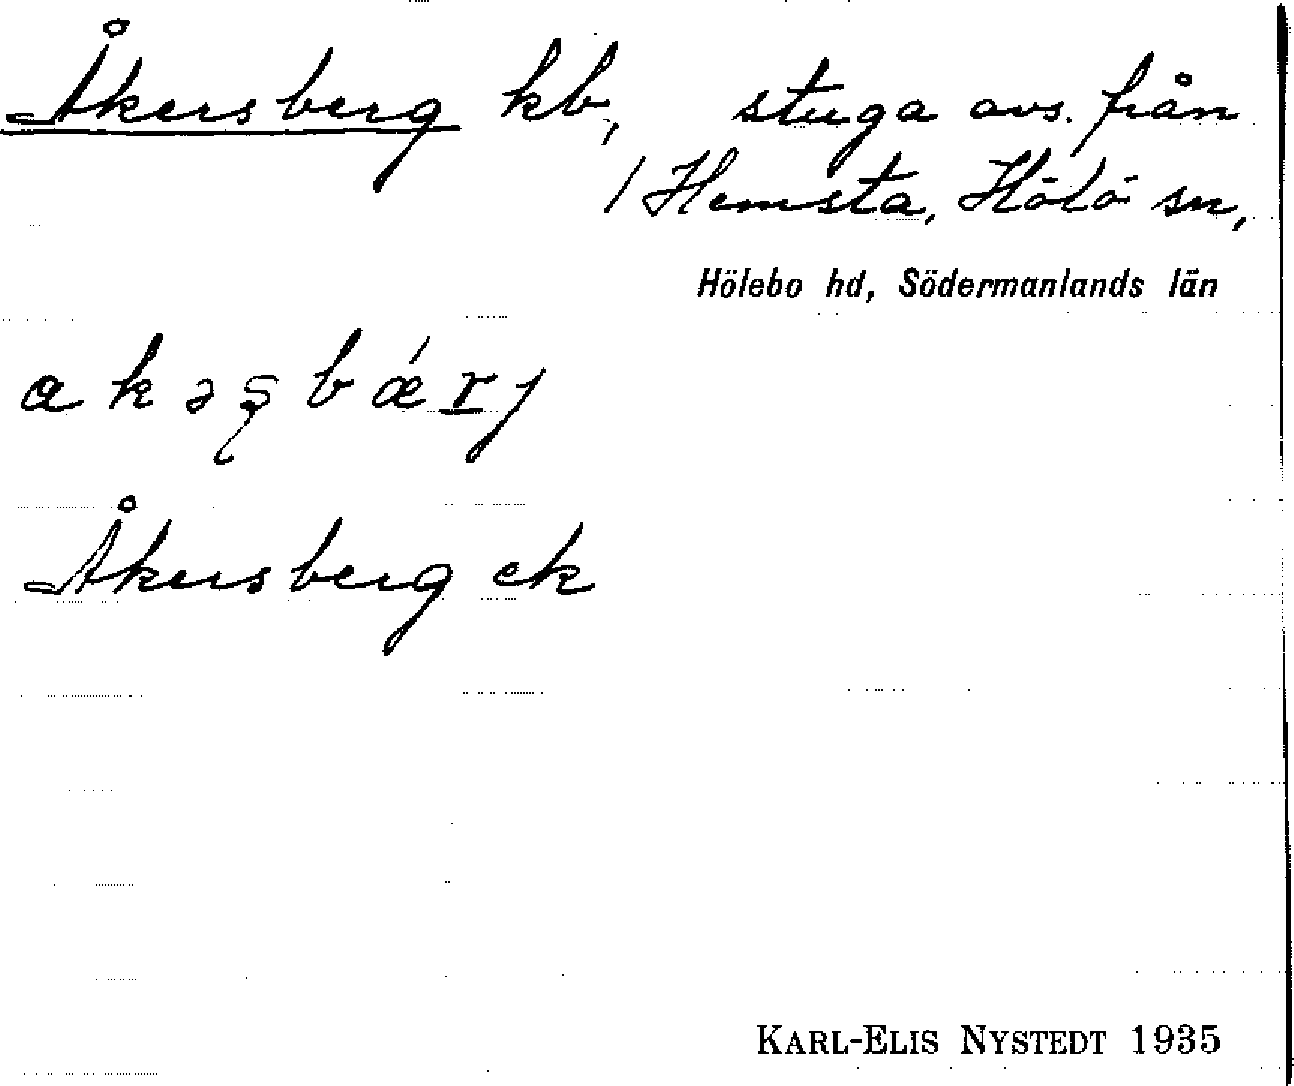 Åkersberg kb, stuga avs. från
/ Hemsta, Hölö sn,
Hölebo hd, Södermanlands län
Åkersberg ek
KARL-ELIS NYSTEDT 1935